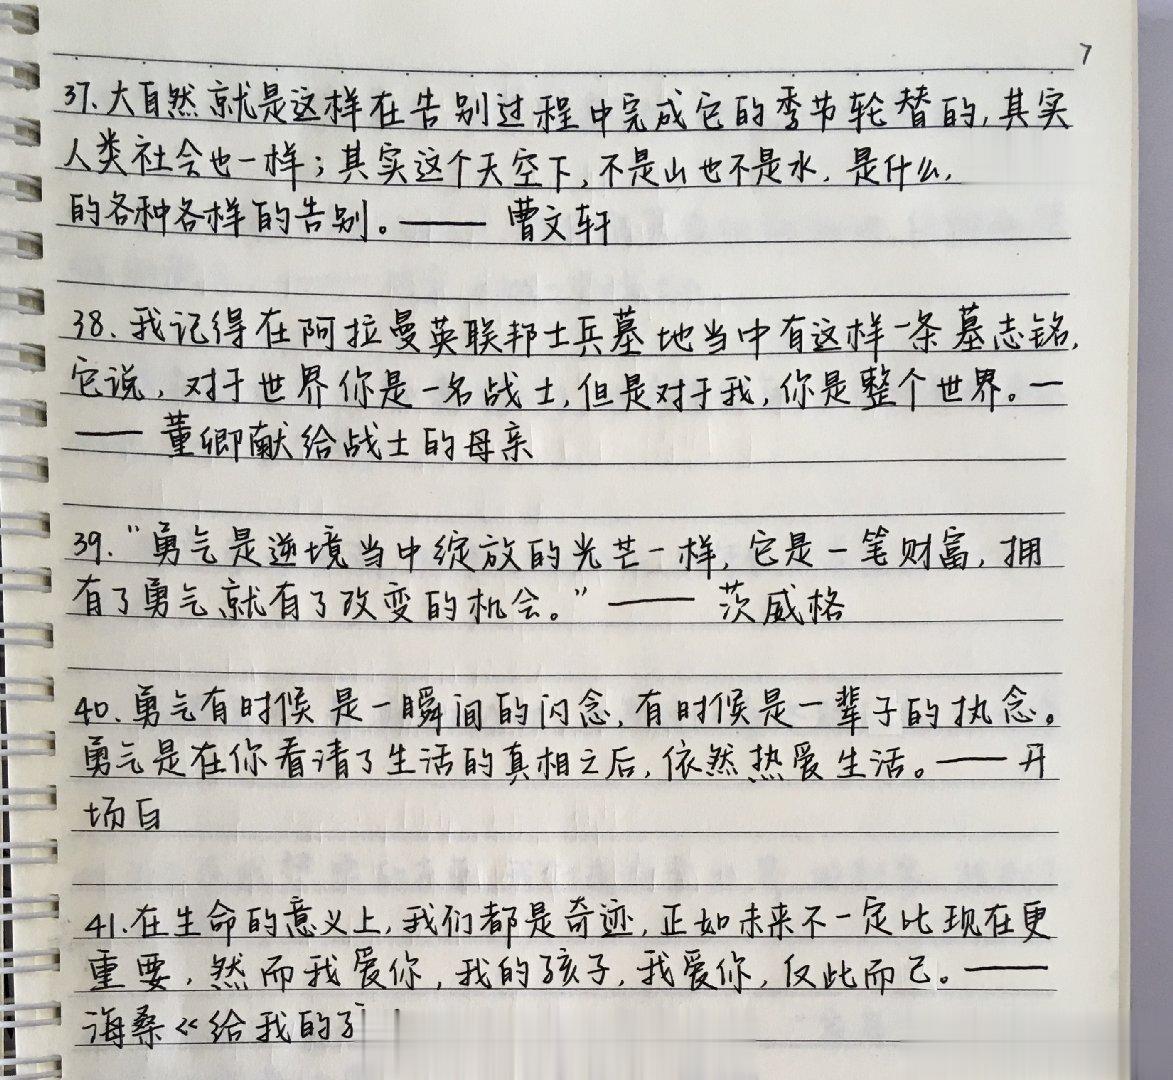 7
37.大自然就是这样在告别过程中完成它的季节轮替的,其实
人类社会也一样;其实这个天空下,不是山也不是水,是什么,
的各种各样的告别。—— 曹文轩
38.我记得在阿拉曼英联邦士兵墓地当中有这样一条墓志铭,
它说,对于世界你是一名战士,但是对于我,你是整个世界。—
—— 董卿献给战士的母亲
39.“勇气是逆境当中绽放的光芒一样,它是一笔财富,拥
有了勇气就有了改变的机会。”—— 茨威格
40.勇气有时候是一瞬间的闪念,有时候是一辈子的执念。
勇气是在你看清了生活的真相之后,依然热爱生活。——开
场白
41.在生命的意义上,我们都是奇迹,正如未来不一定比现在更
重要,然而我爱你,我的孩子,我爱你,仅此而已。——
海桑《给我的